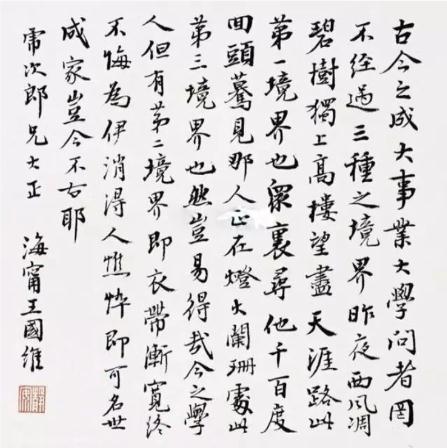 古今之成大事業大學問者罔
不經過三種之境界昨夜西風凋
碧樹獨上高樓望盡天涯路此
第一境界也眾裏尋他千百度
回頭驀見那人正在燈火闌珊處此
第三境界也然豈易得哉今之學
人但有第二境界即衣帶漸寬終
不悔為伊消得人憔悴即可名世
成家豈今不古耶
雷次郎兄大正
海甯王國維